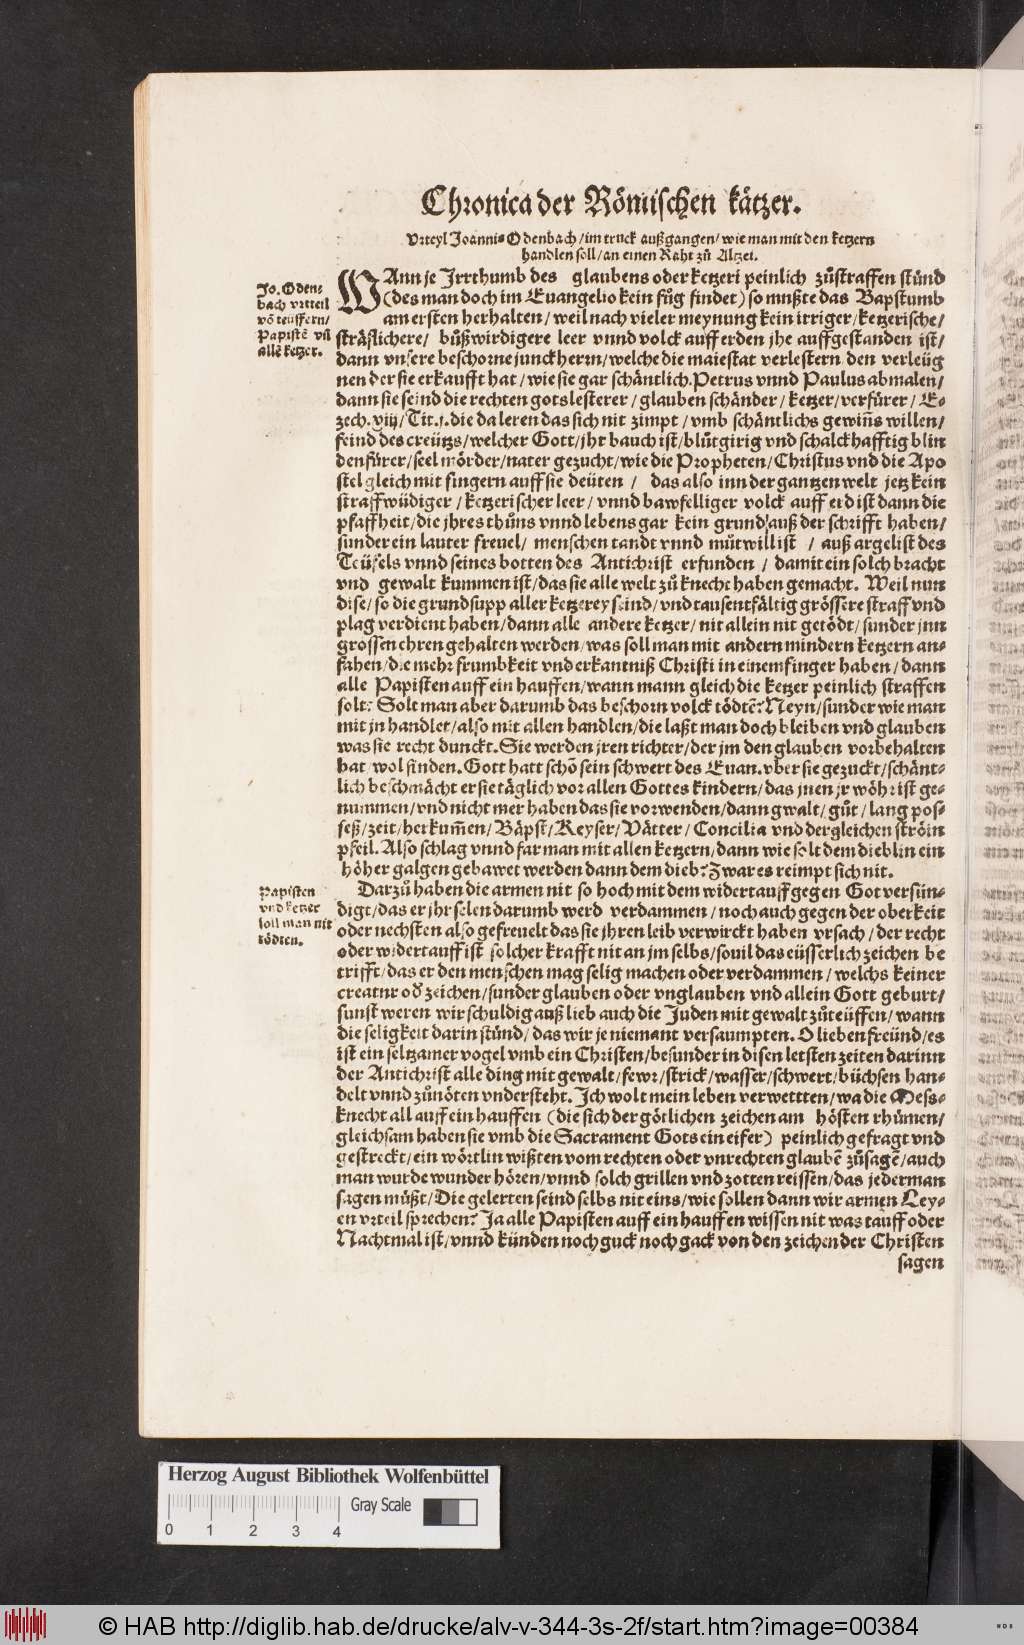 Chronica der Römischen kätzer.
Vrteyl Joannis Odenbach/im truck außgangen/wie man mit den ketzern
handlen soll/an einen Raht zů Altzei.
Jo. Oden⸗
bach vrteil
võ teuffern/
Papistẽ vñ
allẽ ketzer.
WAnn je Jrrthumb des glaubens oder ketzeri peinlich zůstraffen stünd
(des man doch im Euangelio kein fůg findet) so můßte das Bapstumb
am ersten herhalten/weil nach vieler meynung kein irriger/ketzerische/
sträflichere/ bůßwirdigere leer vnnd volck auff erden jhe auffgestanden ist/
dann vnsere beschorne junckherrn/welche die maiestat verlestern den verleüg
nen der sie erkaufft hat/wie sie gar schäntlich. Petrus vnnd Paulus abmalen/
dann sie seind die rechten gotslesterer/glauben schänder/ketzer/verfürer/E⸗
zech.viij/Tit.j.die da leren das sich nit zimpt/vmb schäntlichs gewiñs willen/
feind des creützs/welcher Gott/jhr bauch ist/blůtgirig vnd schalckhafftig blin
denfürer/seel mörder/nater gezucht/wie die Propheten/Christus vnd die Apo
stel gleich mit fingern auff sie deüten/ das also inn der gantzen welt jetz kein
straffwüdiger/ketzerischer leer/vnnd bawfelliger volck auff erd ist dann die
pfaffheit/die jhres thůns vnnd lebens gar kein grund auß der schrifft haben/
sunder ein lauter freuel/ menschen tandt vnnd můtwill ist / auß argelist des
Teüfels vnnd seines botten des Antichrist erfunden / damit ein solch bracht
vnd gewalt kummen ist/das sie alle welt zů knecht haben gemacht. Weil nun
dise/so die grundsupp aller ketzerey seind/vnd tausentfältig grössere straff vnd
plag verdient haben/dann alle andere ketzer/nit allein nit getödt/sunder jnn
grossen ehren gehalten werden/was soll man mit andern mindern ketzern an⸗
fahen/die mehr frumbkeit vnd erkantniß Christi in einem finger haben/dann
alle Papisten auff ein hauffen/wann mann gleich die ketzer peinlich straffen
solt? Solt man aber darumb das beschorn volck tödtẽ? Neyn/sunder wie man
mit jn handlet/also mit allen handlen/die laßt man doch bleiben vnd glauben
was sie recht dunckt. Sie werden jren richter/der jm den glauben vorbehalten
hat/wol finden. Gott hatt schõ sein schwert des Euan. vber sie gezuckt/schänt⸗
lich beschmächt er sie täglich vor allen Gottes kindern/das jnen jr wöhr ist ge⸗
nummen/vnd nicht mer haben das sie vorwenden/dann gwalt/gůt/lang pos⸗
seß/zeit/herkum̃en/Bäpst/Keyser/Vätter/Concilia vnd dergleichen ströin
pfeil. Also schlag vnnd far man mit allen ketzern/dann wie solt dem dieblin ein
höher galgen gebawet werden dann dem dieb? Zwar es reimpt sich nit.
Papisten
vnd ketzer
soll man nit
tödten.
Darzů haben die armen nit so hoch mit dem widertauff gegen Got versün⸗
digt/das er jhr selen darumb werd verdammen/noch auch gegen der oberkeit
oder nechsten also gefreuelt das sie jhren leib verwirckt haben vrsach/der recht
oder widertauff ist solcher krafft nit an jm selbs/souil das eüsserlich zeichen be
trifft/das er den menschen mag selig machen oder verdammen/welchs keiner
creatur od zeichen/sunder glauben oder vnglauben vnd allein Gott geburt/
sunst weren wir schuldig auß lieb auch die Juden mit gewalt zůteüffen/wann
die seligkeit darin stünd/das wir je niemant versaumpten. O lieben freünd/es
ist ein seltzamer vogel vmb ein Christen/besunder in disen letsten zeiten darinn
der Antichrist alle ding mit gewalt/fewr/strick/wasser/schwert/büchsen han⸗
delt vnnd zůnöten vndersteht. Jch wolt mein leben verwettten/wa die Mess⸗
knecht all auff ein hauffen (die sich der götlichen zeichen am hösten rhümen/
gleichsam haben sie vmb die Sacrament Gots ein eifer) peinlich gefragt vnd
gestreckt/ein wörtlin wißten vom rechten oder vnrechten glaubẽ zůsagẽ/auch
man wurde wunder hören/vnnd solch grillen vnd zotten reissen/das jederman
sagen můßt/Die gelerten seind selbs nit eins/wie sollen dann wir armen Ley⸗
en vrteil sprechen? Ja alle Papisten auff ein hauffen wissen nit was tauff oder
Nachtmal ist/vnnd künden noch guck noch gack von den zeichen der Christen
sagen
Herzog August Bibliothek Wolfenbüttel
Gray Scale
0 1 2 3 4
© HAB http://diglib.hab.de/drucke/alv-v-344-3s-2f/start.htm?image=00384